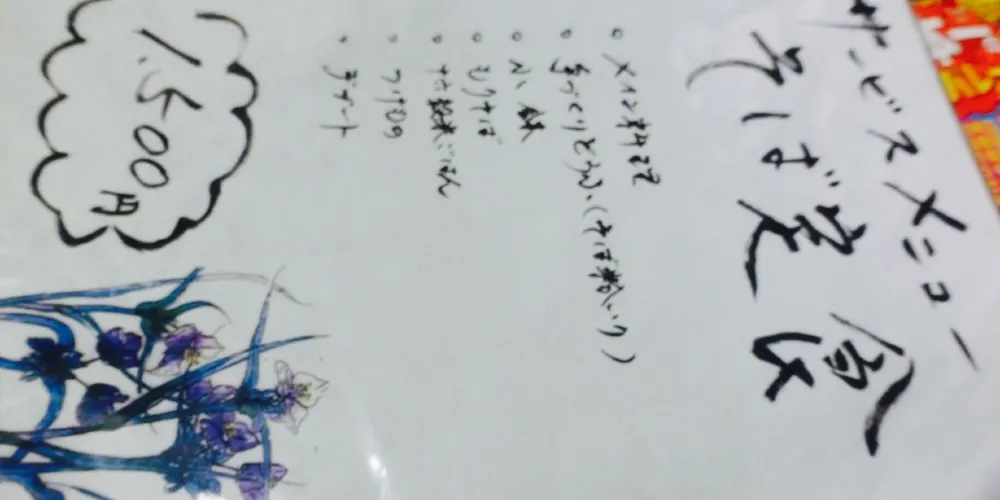 サービスメニュー
そば定食
・メイン料理
・手づくりとうふ(そば粉入り)
・小鉢
・もりそば
・そば雑炊ごはん
・つけもの
・デザート
1,500円